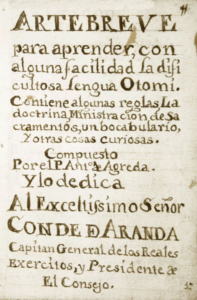 ARTE BREVE
para aprender, con
alguna facilidad la difi
cultosa lengua Otomi.
Contiene algunas reglas, la
doctrina, Ministracion de Sa
cramentos, un bocabulario,
Y otras cosas curiosas.
Compuesto
Por el P. Ant.º de Agreda.
Y lo dedica
Al Exceltissimo Señor
CONDE D ARANDA
Capitan General de los Reales
Exercitos, y Presidente de
El Consejo.